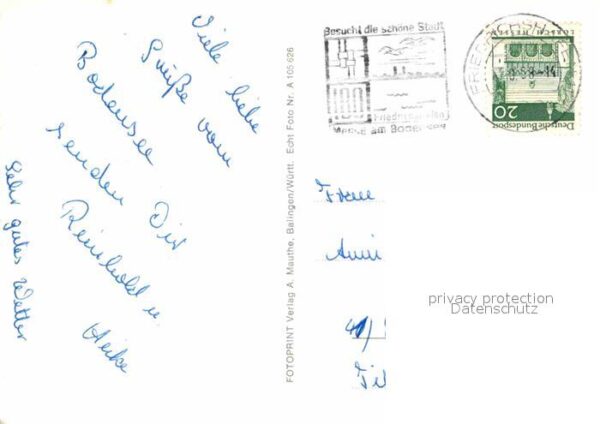 Viele liebe
Grüße vom
Bodensee
senden Dir
Reinhold u
Heike
Sehr gutes Wetter
FOTOPRINT Verlag A. Mauthe, Balingen/Württ. Echt Foto Nr. A 105 626
Besucht die schöne Stadt
Friedrichshafen
am Bodensee
FRIEDRICHSHAFEN
20
Deutsche Bundespost
LORSCH HESSEN
Frau
Anni
privacy protection
Datenschutz